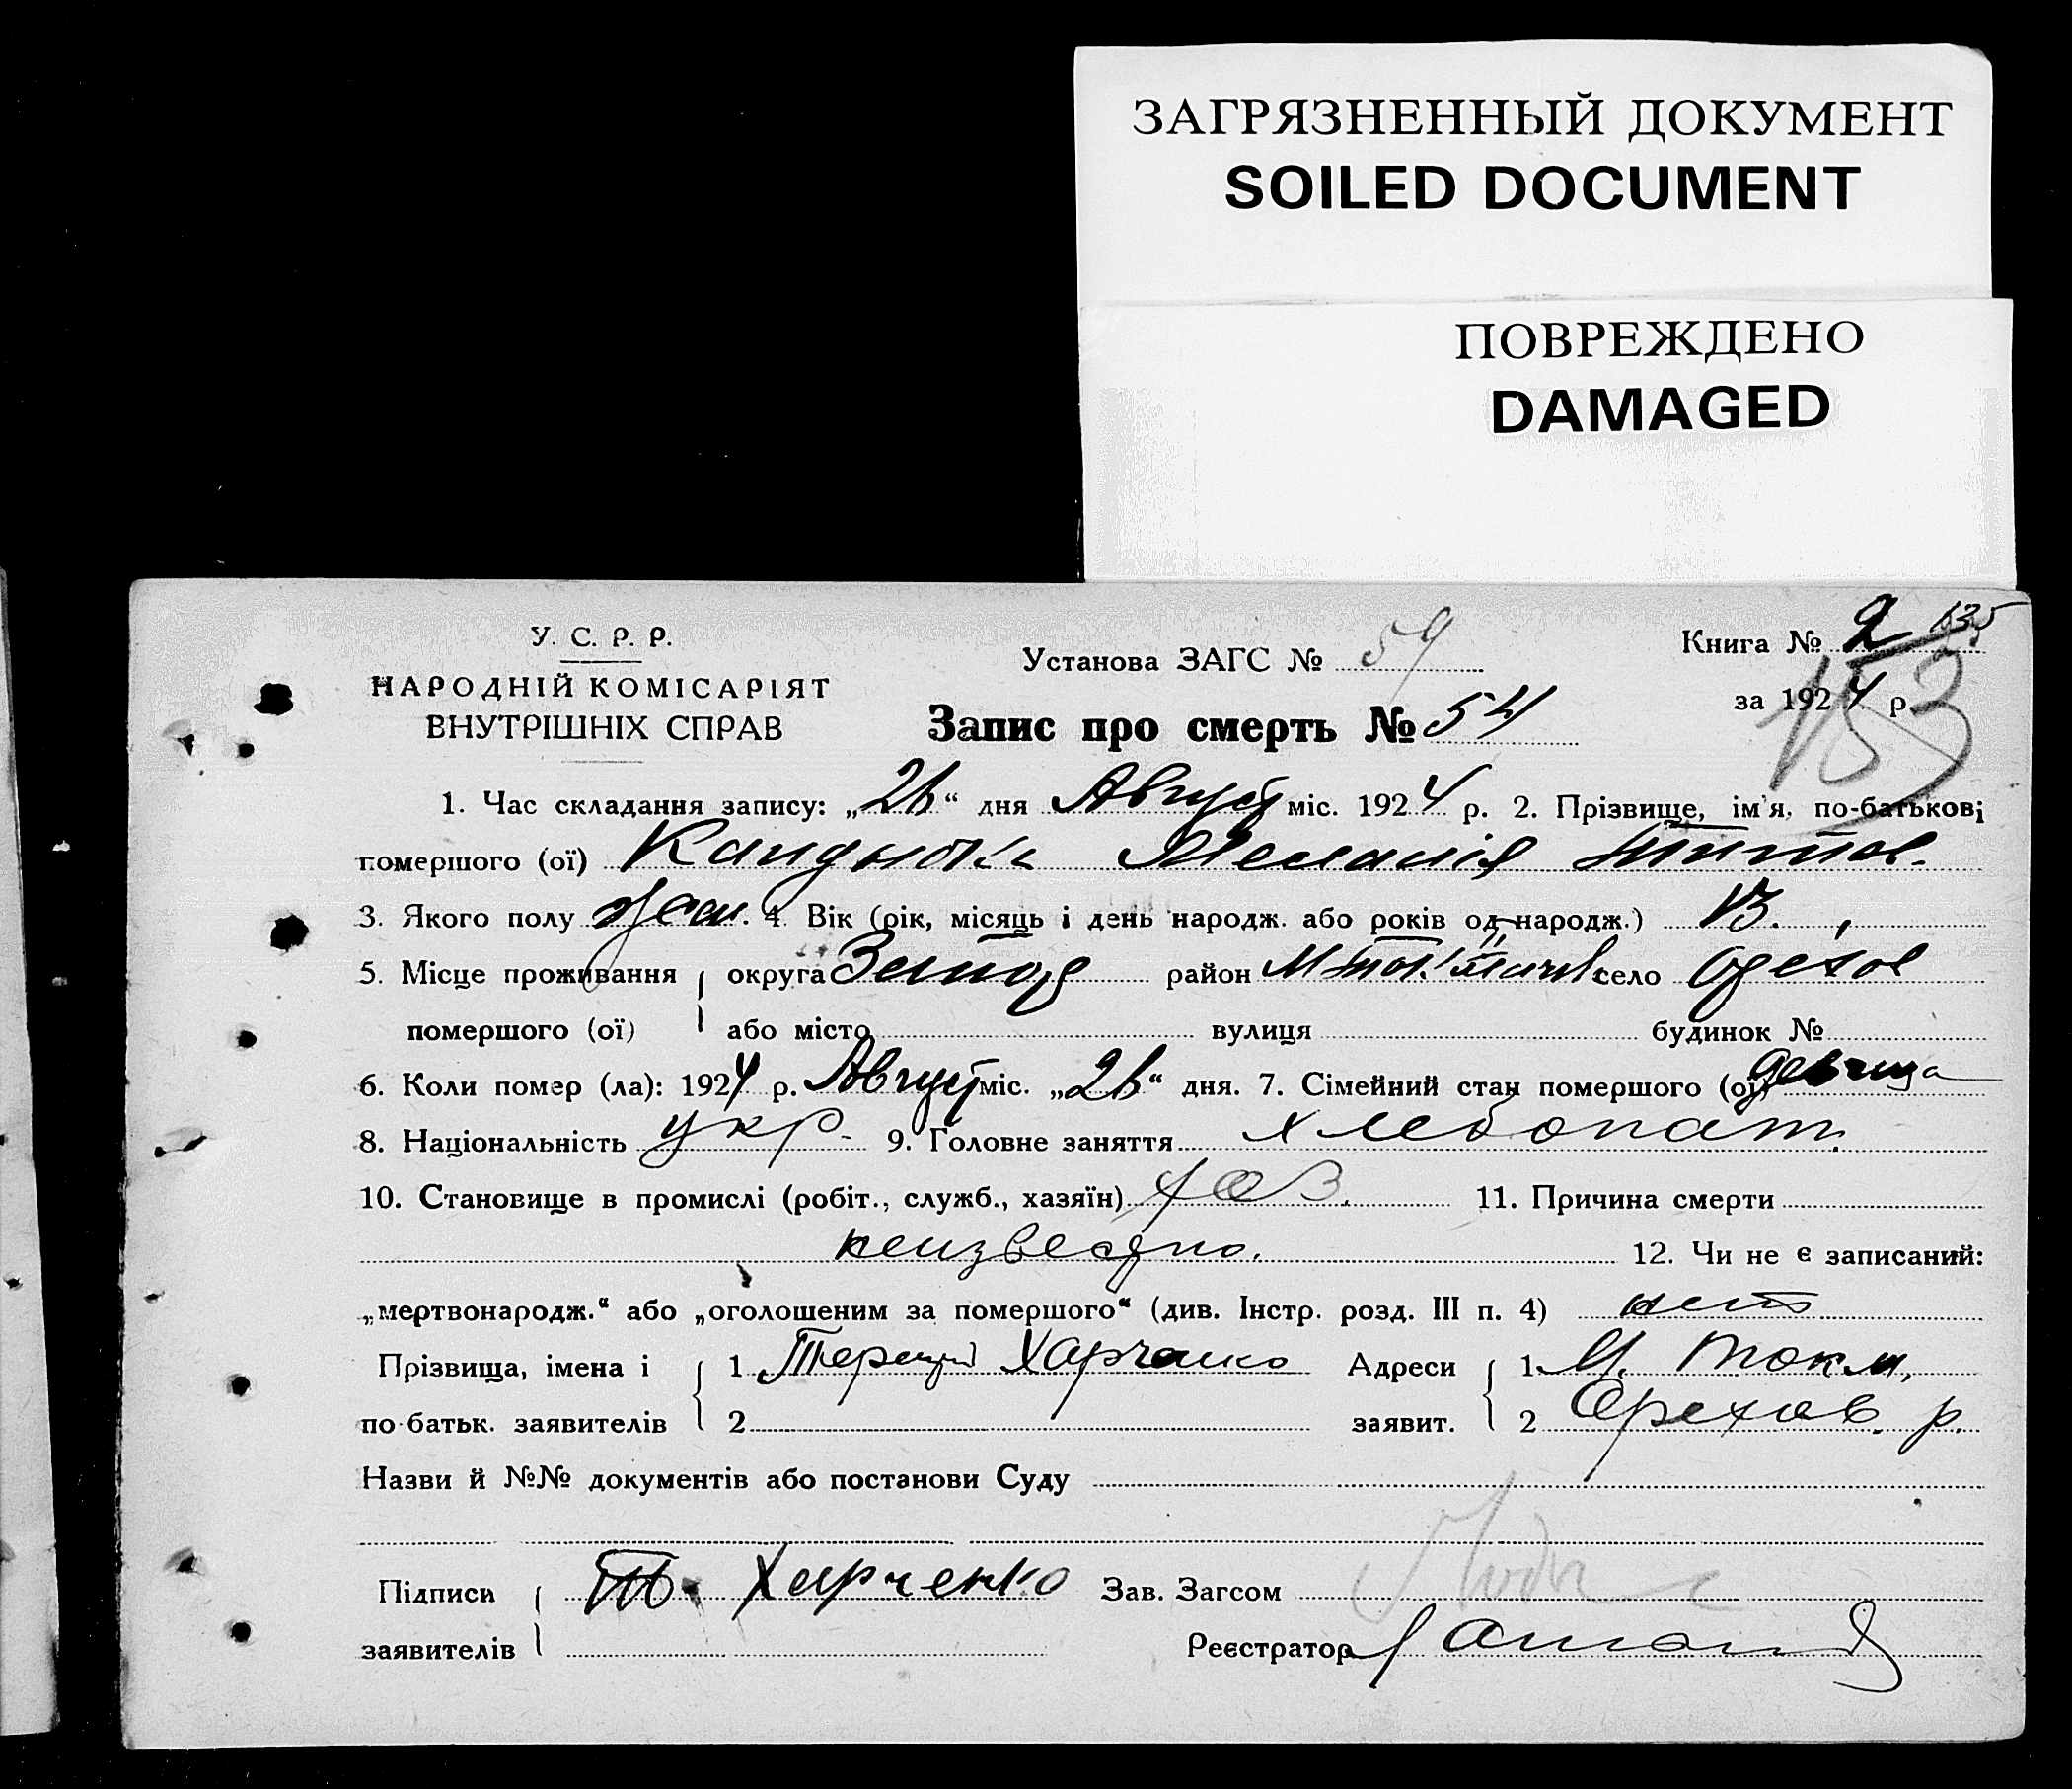 ЗАГРЯЗНЕННЫЙ ДОКУМЕНТ
SOILED DOCUMENT
ПОВРЕЖДЕНО
DAMAGED
У. С. Р. Р.
НАРОДНІЙ КОМІСАРІЯТ
ВНУТРІШНІХ СПРАВ
Установа ЗАГС № 59
Книга № 2 135
за 1924 р. 153
Запис про смерть № 54
1. Час складання запису: „26“ дня Август міс. 1924 р. 2. Прізвище, ім'я, по-батькові
помершого (ої) Мелания
3. Якого полу жен. 4. Вік (рік, місяць і день народж. або років од народж.) 13.
5. Місце проживання округа район село Орехов
помершого (ої) або місто вулиця будинок №
6. Коли помер (ла): 1924 р. Август міс. „26“ дня. 7. Сімейний стан помершого (ої) девица
8. Національність укр. 9. Головне заняття хлебопаш.
10. Становище в промислі (робіт., служб., хазяїн) хоз. 11. Причина смерти
неизвестно. 12. Чи не є записаний:
„мертвонародж.“ або „оголошеним за помершого“ (див. Інстр. розд. III п. 4) нет
Прізвища, імена і 1 Терентий Харченко Адреси 1. М. Токм,
по-батьк. заявителів 2 заявит. 2 Орехов. р.
Назви й №№ документів або постанови Суду
Підписи Т. Харченко Зав. Загсом
заявителів Реєстратор